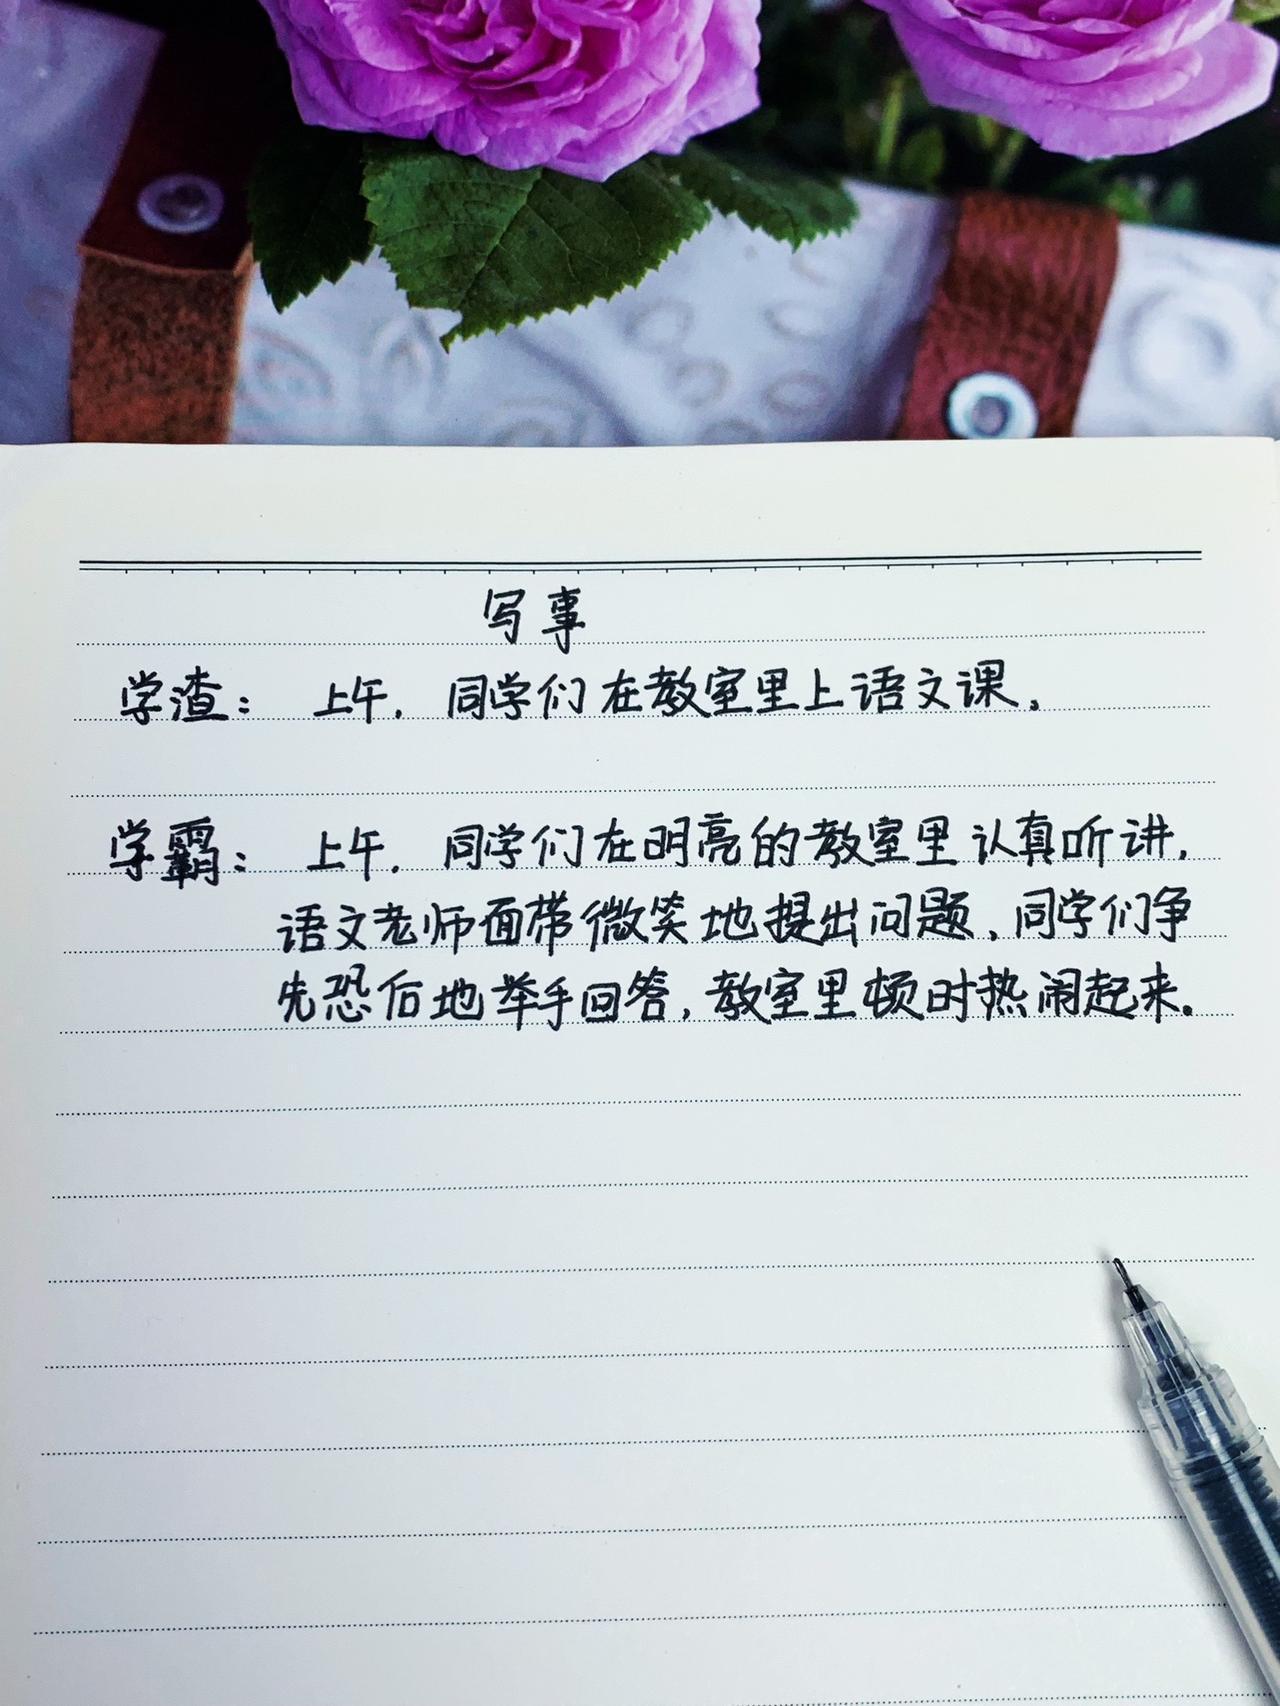 写事
学渣： 上午，同学们在教室里上语文课。
学霸： 上午，同学们在明亮的教室里认真听讲，
语文老师面带微笑地提出问题，同学们争
先恐后地举手回答，教室里顿时热闹起来。